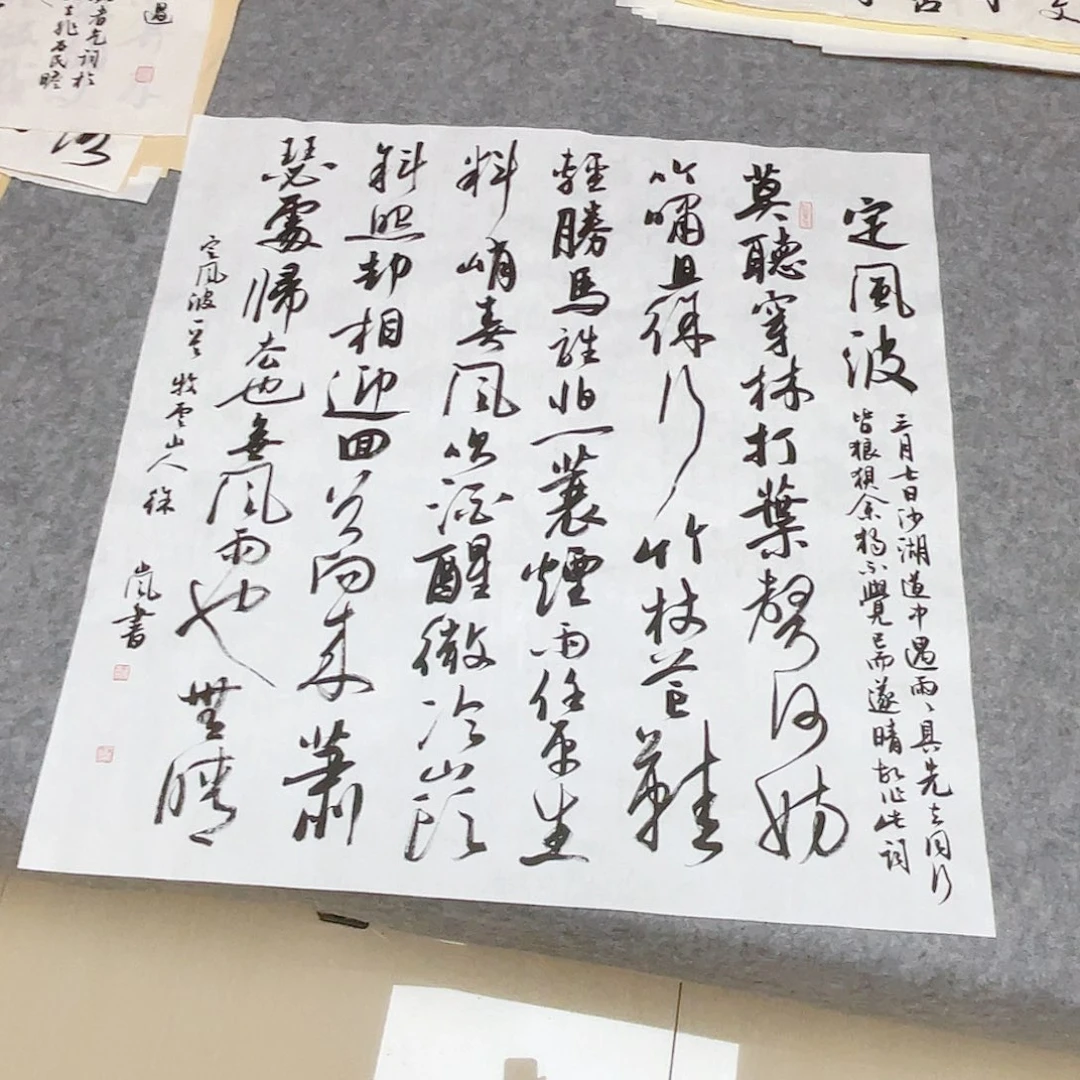 定風波
三月七日沙湖道中遇雨〻具先去同行
皆狼狽余獨不覺已而遂晴故作此詞
莫聽穿林打葉聲何妨
吟嘯且徐行竹杖芒鞵
輕勝馬誰怕一蓑煙雨任平生
料峭春風吹酒醒微冷山頭
斜照却相迎回首向來蕭
瑟處歸去也無風雨也無晴
定風波一首 牧雲山人徐
嵐書